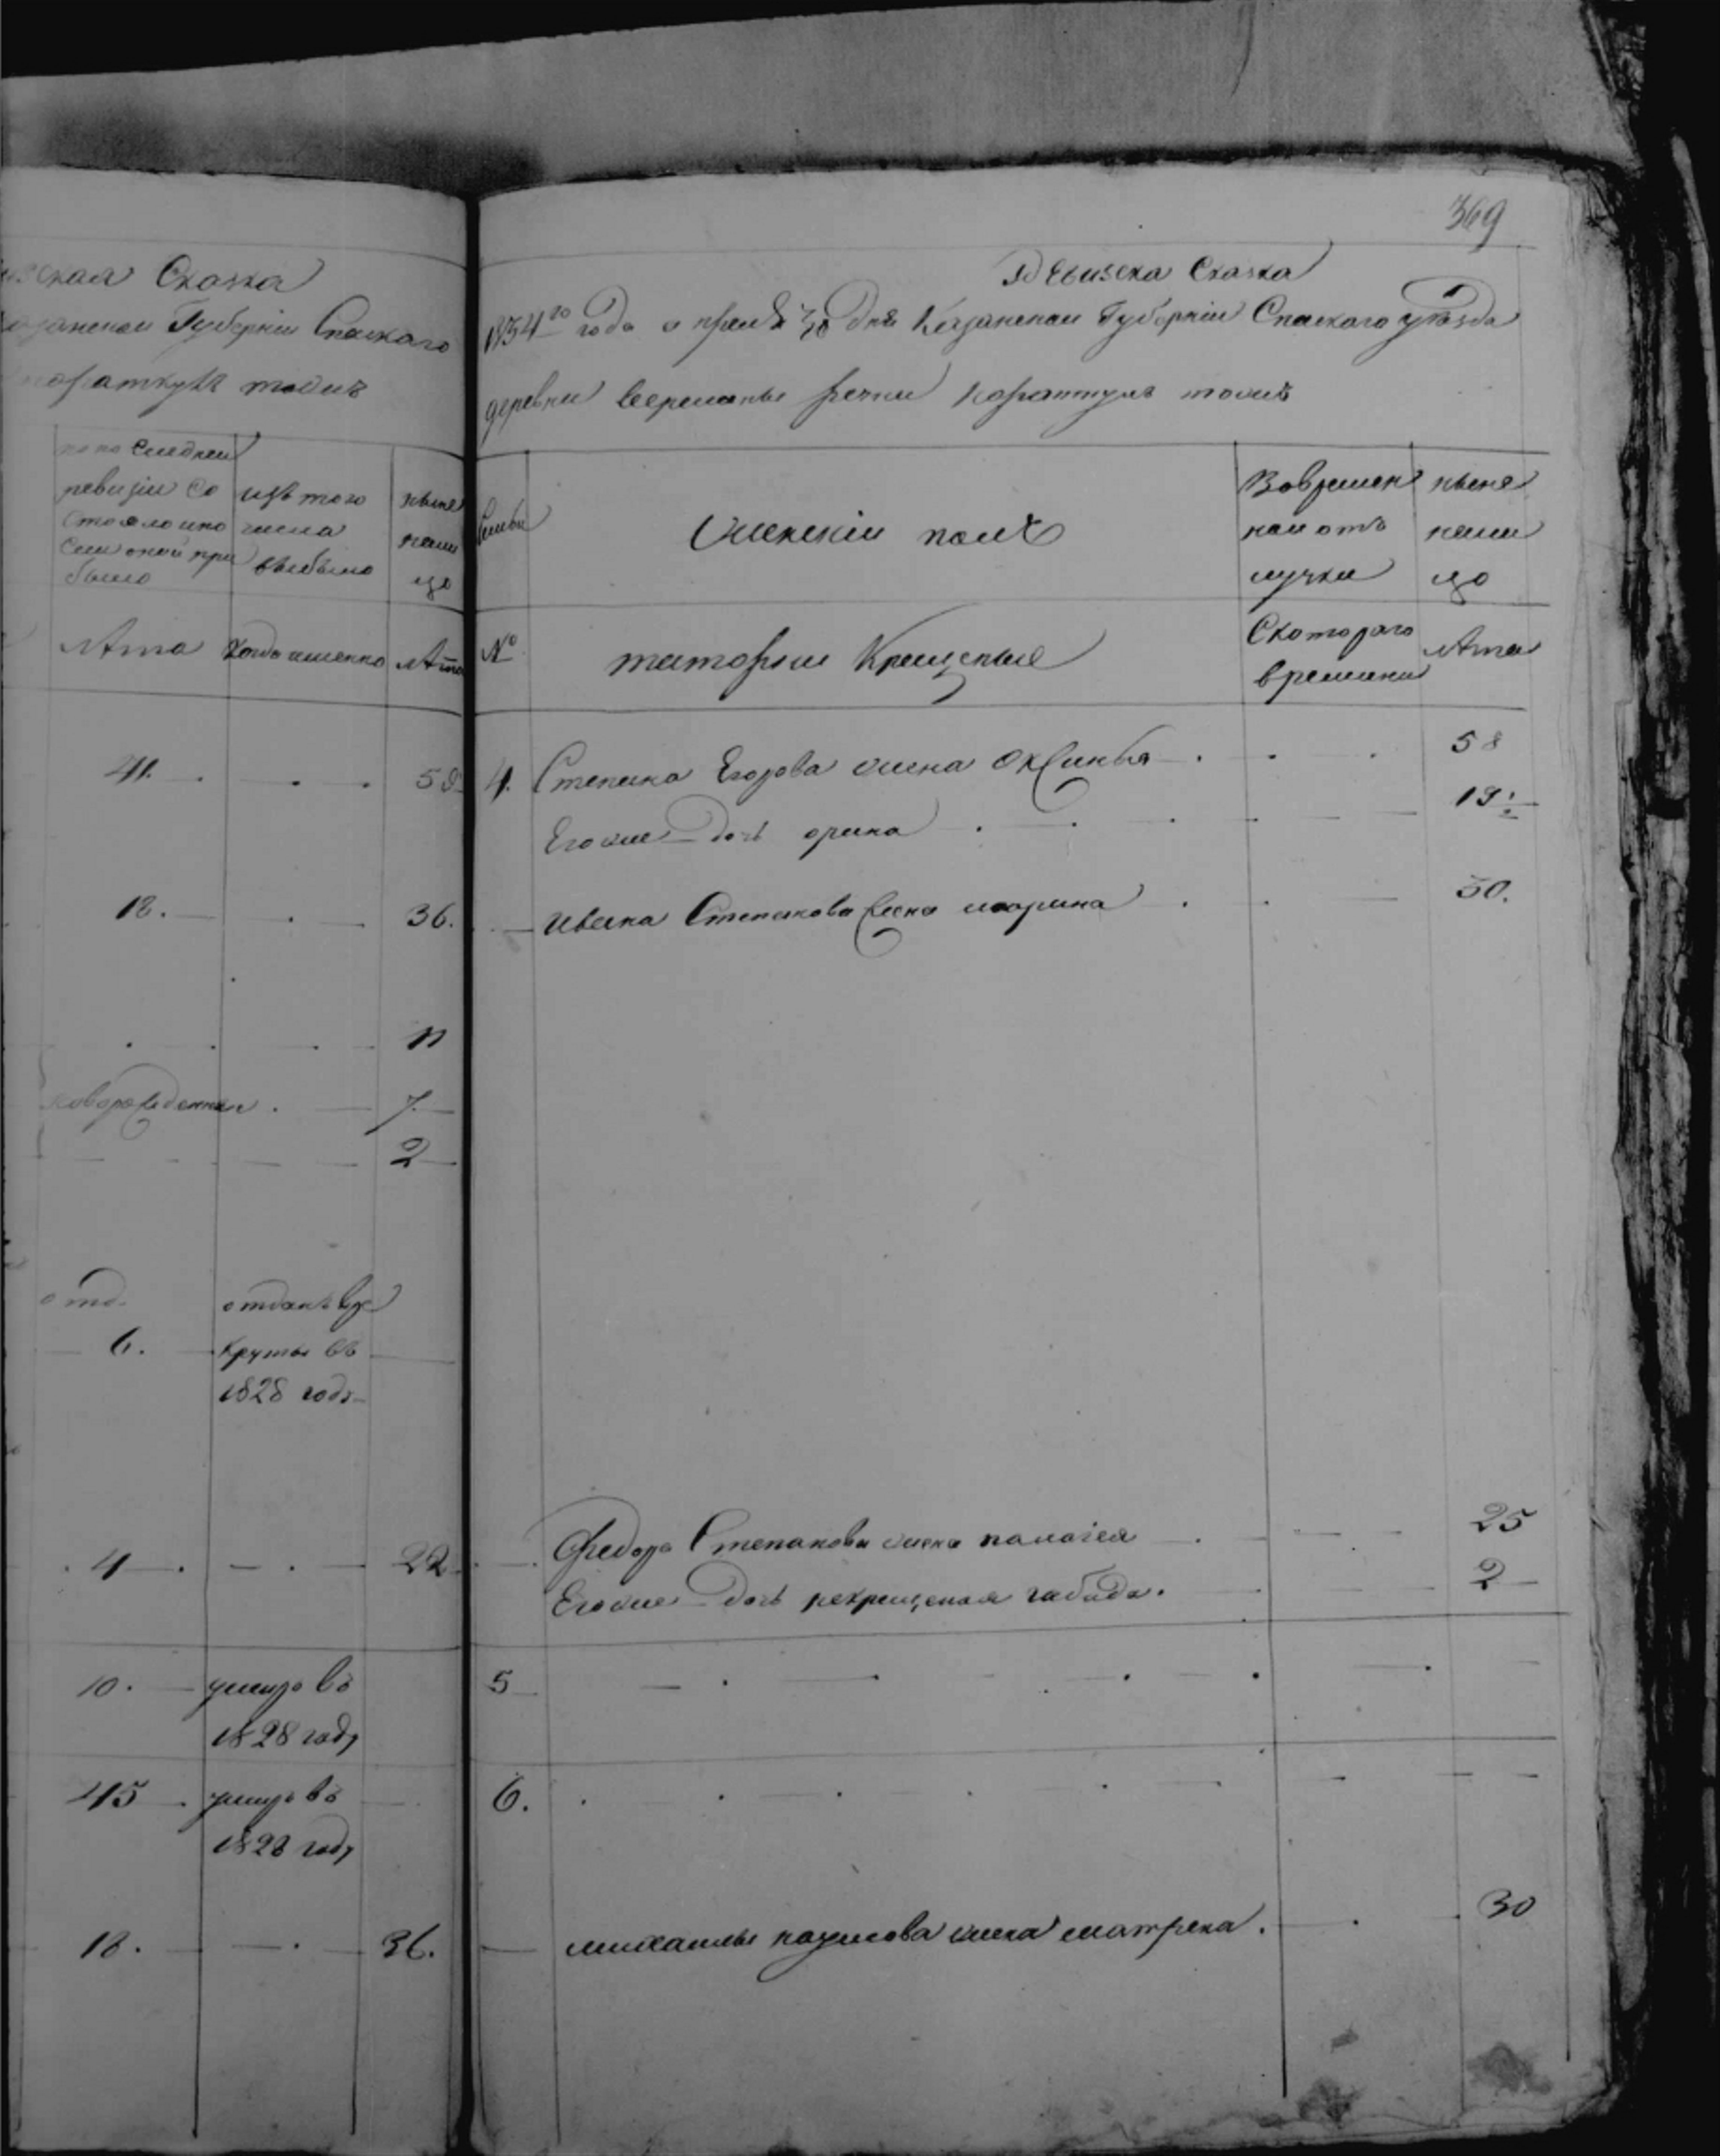 Сказка
Губерніи Спаскаго
тожъ
по последней
ревизіи со
стояло и по
сле оной при
было
изъ того
числа
выбыло
ныне
на ли
цо
Лѣта
Когда именно
Лѣта
41.
58
18.
36.
11
новорожденнои
7
2
6.
отданъ в ре
круты въ
1828 годѣ
4
22
10.
умиръ въ
1828 году
45
умиръ въ
1828 году
18.
36.
369
Ревизска Сказка
1834го года апреля 30 дня Казанской Губерніи Спаскаго уѣзда
деревни вершины речки тожъ
Семьи
Женскіи полъ
Во времен
ной отъ
лучки
ныне
на ли
цо
№
татары Крещеные
Скотораго
времени
Лѣта
4. Степана Егорова жена Оксинья 58
Его же дочь орина 19
Ивана Степанова жена марина 50.
Федора Степанова жена палагея 25
Его же дочь некрещеная габида. 2
5
6.
михаилы наумова жена матрена. 30